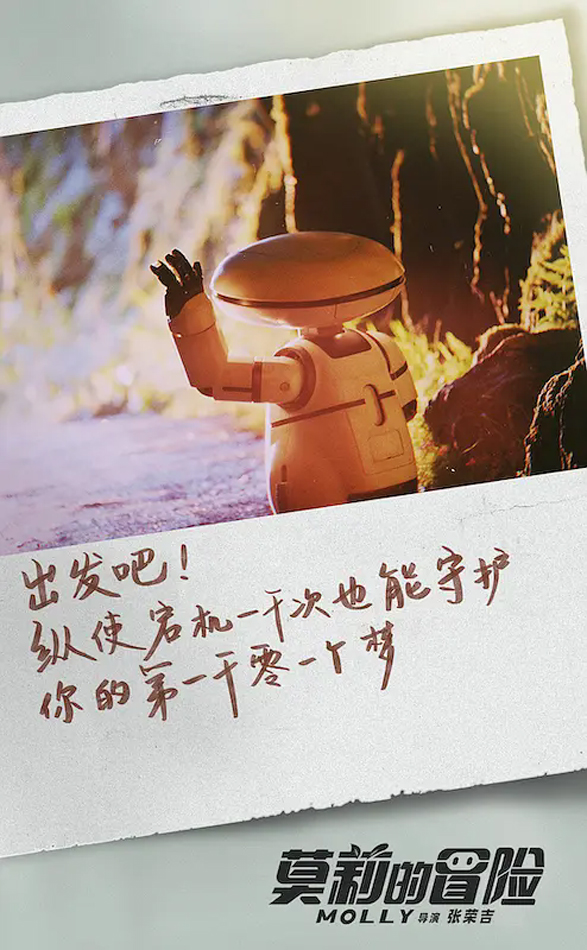 出发吧!
纵使宕机一千次也能守护
你的第一千零一个梦
莫莉的冒险
MOLLY 导演 张荣吉